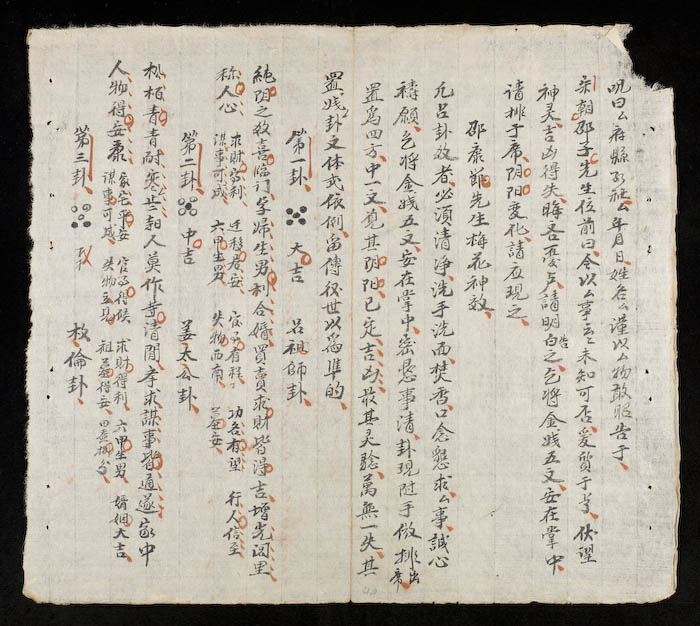 呪曰厶府縣厶社厶年月日姓名厶謹以厶物敢昭告于
宋朝邵子先生位前曰今以厶事云々未知可否爰質于占伏望
神灵吉凶得失晦吝憂虞請明告白之乞將金战五文安在掌中
请排于席阴阳变化請应現之
邵康節先生梅花神效
凡占卦效者必湏清淨洗手洗面焚香口念懇求厶事誠心
禱願乞將金战五文安在掌中密懇事清卦現附手做排出席
置爲四方中一文覓其阴阳已定吉凶最其灵驗萬無一失其
置战卦文体式依例留傳後世以爲準的
第一卦 大吉 吕祖師卦
純阴之效喜臨门孕婦生男利合婚買賣求財皆得吉增光闾里
称人心 求財多利 迁移居安 官司有理 功名有望 行人信至
謀事可成 六甲生男 失物西南 墓安
第二卦 中吉 姜太公卦
松柏青青耐寒 人莫作等清閒 求謀事皆通遂家中
人物得安康 家宅平安 官司得 求財得利 六甲生男 婚姻大吉
謀事可成 失物互見 祖墓得安
第三卦 枚倫卦